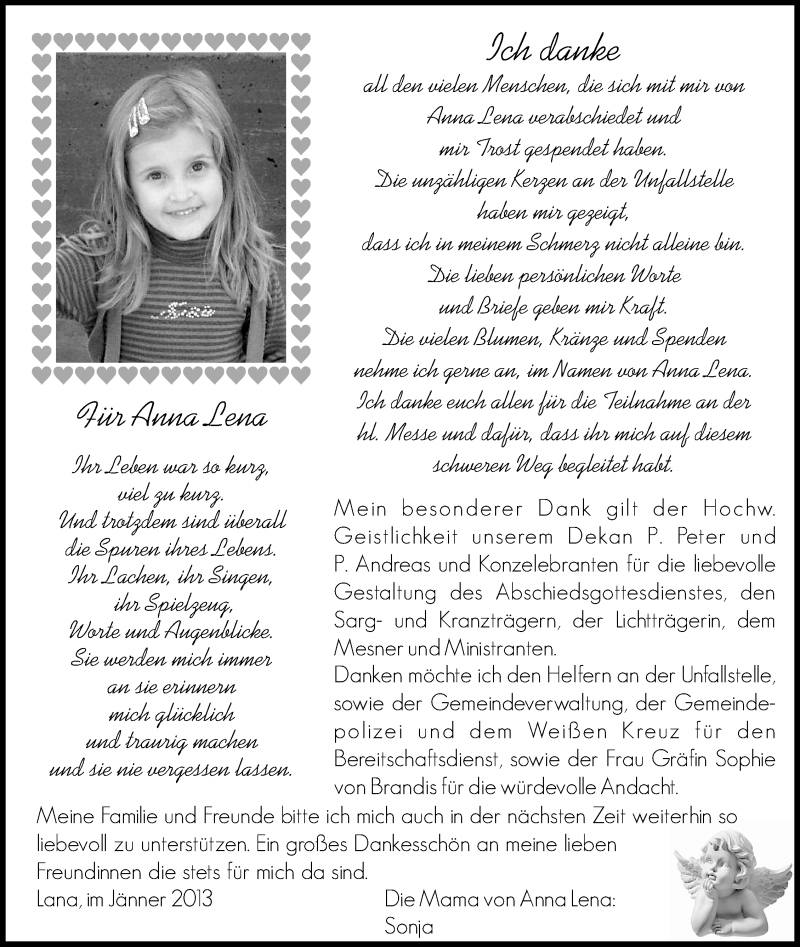 Ich danke
all den vielen Menschen, die sich mit mir von
Anna Lena verabschiedet und
mir Trost gespendet haben.
Die unzähligen Kerzen an der Unfallstelle
haben mir gezeigt,
dass ich in meinem Schmerz nicht alleine bin.
Die lieben persönlichen Worte
und Briefe geben mir Kraft.
Die vielen Blumen, Kränze und Spenden
nehme ich gerne an, im Namen von Anna Lena.
Ich danke euch allen für die Teilnahme an der
hl. Messe und dafür, dass ihr mich auf diesem
schweren Weg begleitet habt.
Für Anna Lena
Ihr Leben war so kurz,
viel zu kurz.
Und trotzdem sind überall
die Spuren ihres Lebens.
Ihr Lachen, ihr Singen,
ihr Spielzeug,
Worte und Augenblicke.
Sie werden mich immer
an sie erinnern
mich glücklich
und traurig machen
und sie nie vergessen lassen.
Mein besonderer Dank gilt der Hochw.
Geistlichkeit unserem Dekan P. Peter und
P. Andreas und Konzelebranten für die liebevolle
Gestaltung des Abschiedsgottesdienstes, den
Sarg- und Kranzträgern, der Lichtträgerin, dem
Mesner und Ministranten.
Danken möchte ich den Helfern an der Unfallstelle,
sowie der Gemeindeverwaltung, der Gemeinde-
polizei und dem Weißen Kreuz für den
Bereitschaftsdienst, sowie der Frau Gräfin Sophie
von Brandis für die würdevolle Andacht.
Meine Familie und Freunde bitte ich mich auch in der nächsten Zeit weiterhin so
liebevoll zu unterstützen. Ein großes Dankesschön an meine lieben
Freundinnen die stets für mich da sind.
Lana, im Jänner 2013 Die Mama von Anna Lena:
Sonja